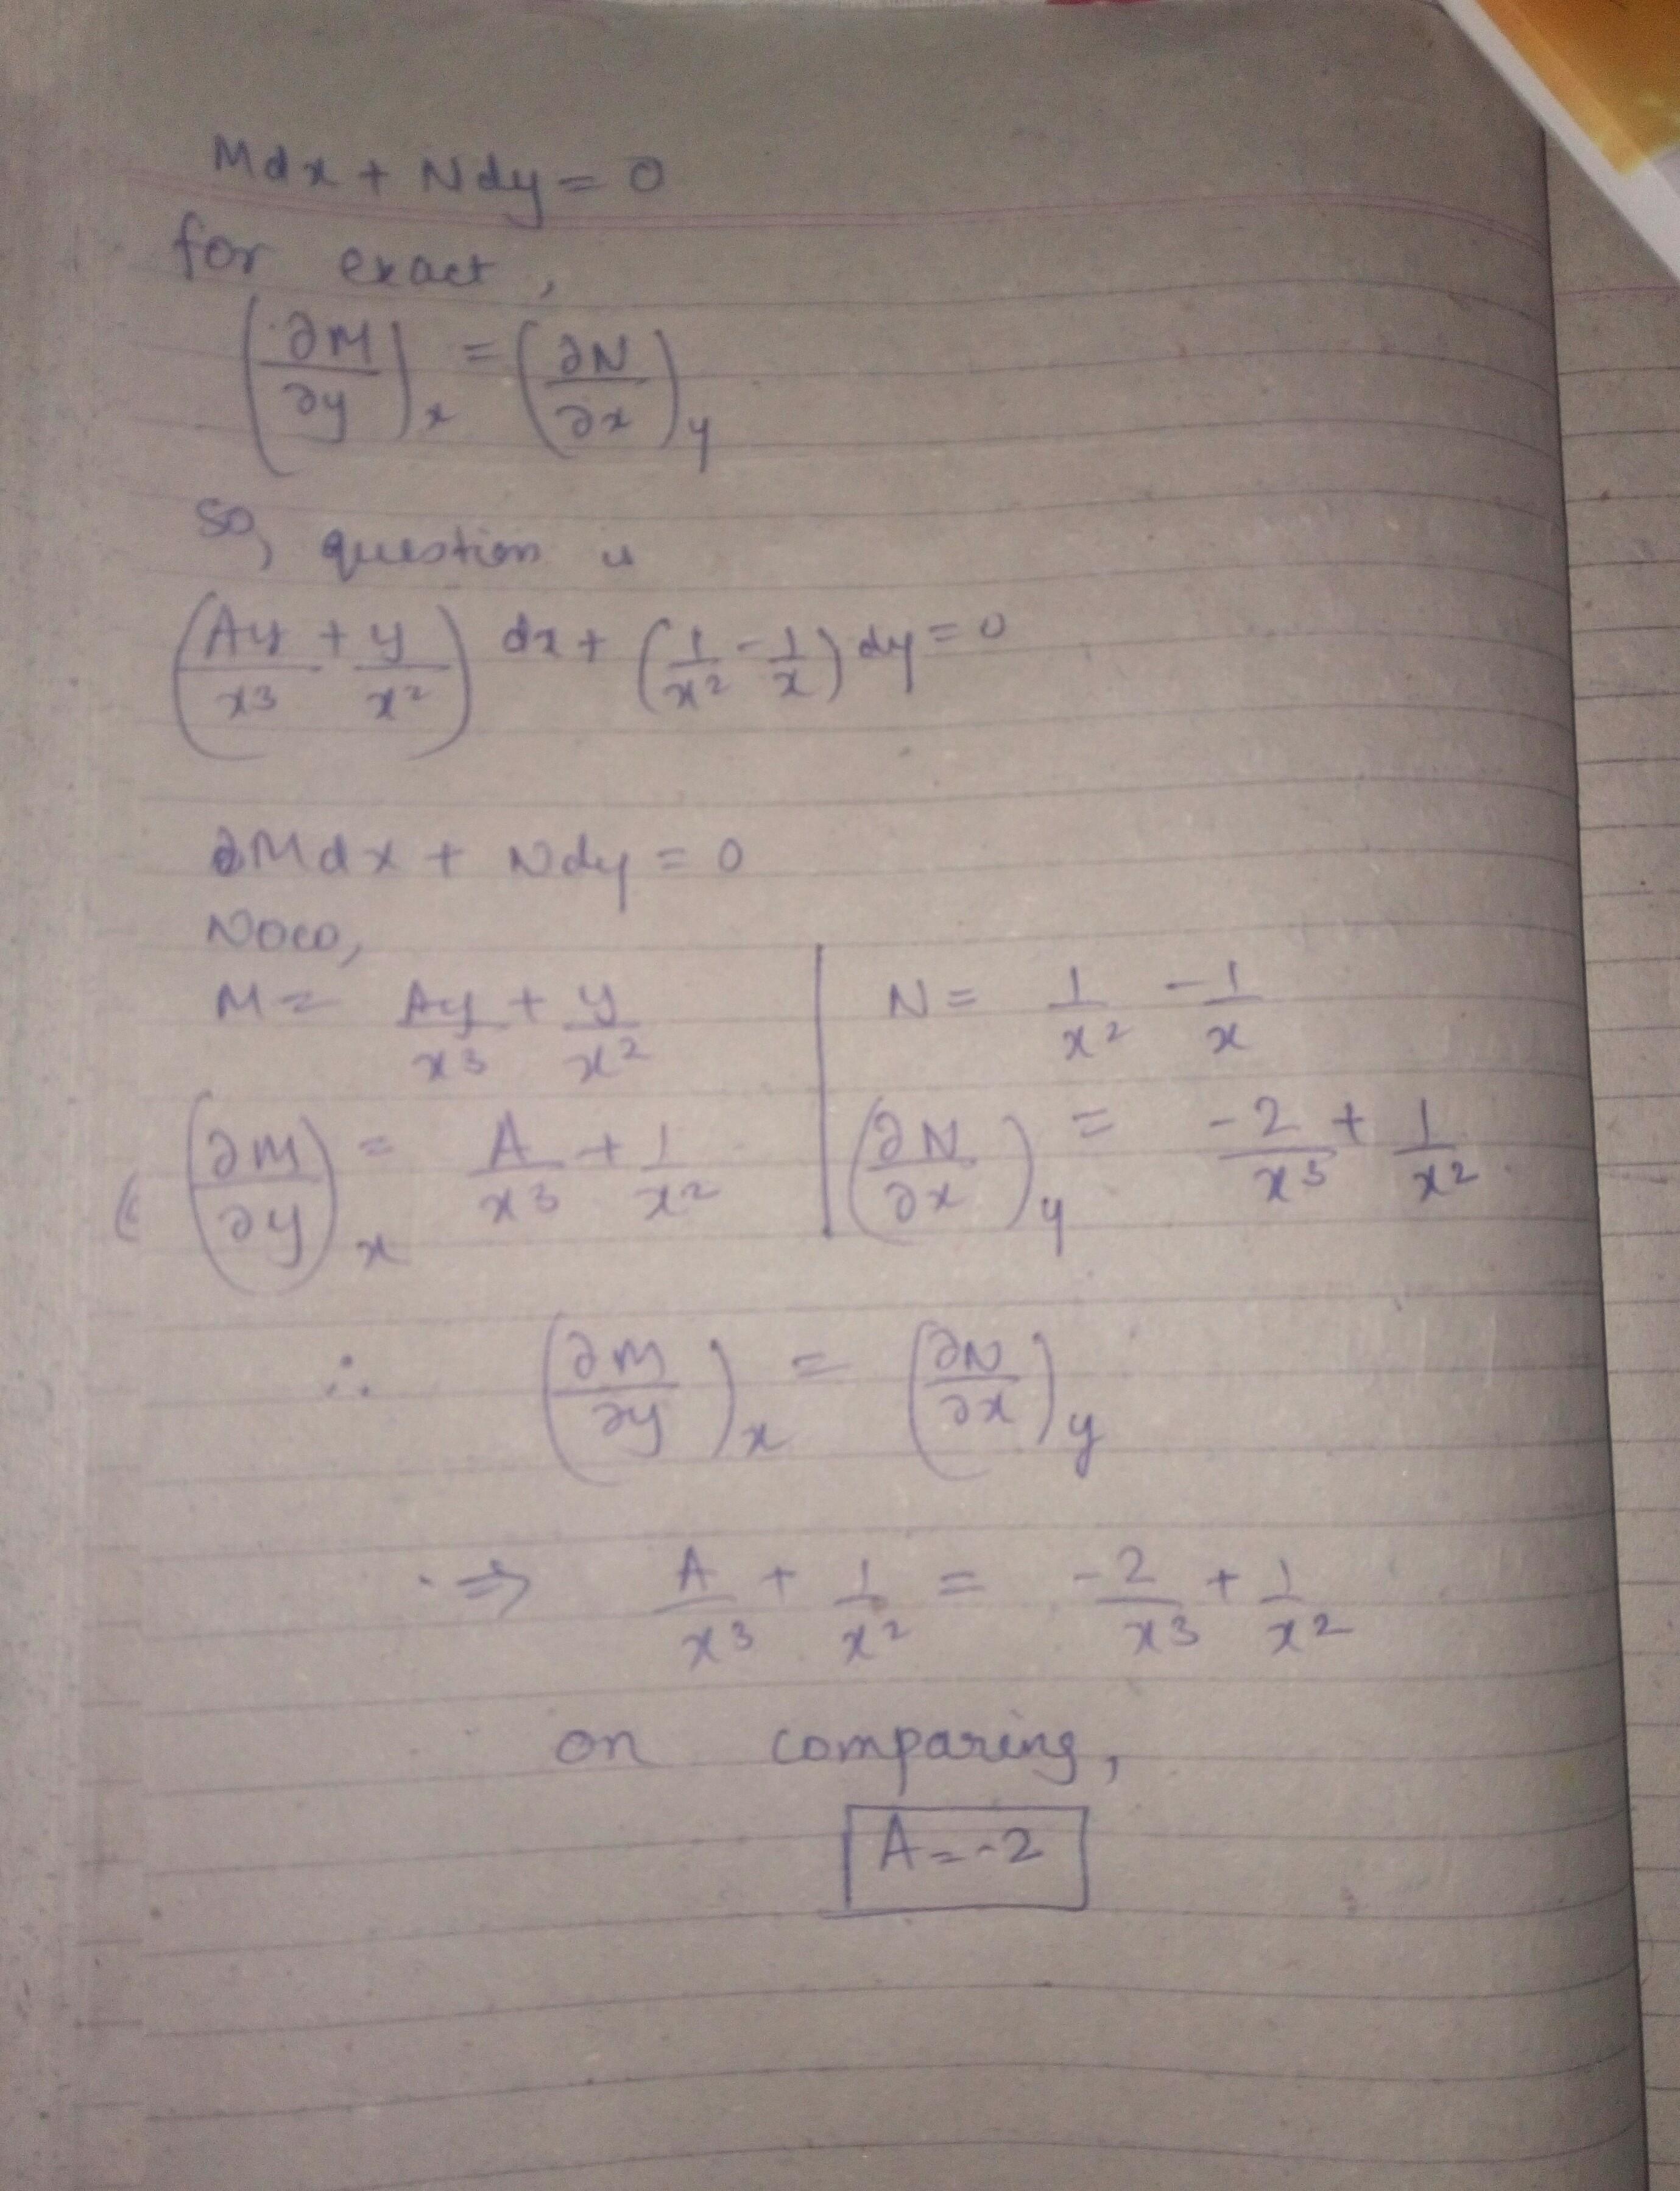 Mdx + Ndy = 0
for exact,
(∂M/∂y)x = (∂N/∂x)y
So, question is
(Ay/x³ + y/x²) dx + (1/x² - 1/x) dy = 0
Mdx + Ndy = 0
Now,
M = Ay/x³ + y/x²
(∂M/∂y)x = A/x³ + 1/x²
N = 1/x² - 1/x
(∂N/∂x)y = -2/x³ + 1/x²
∴ (∂M/∂y)x = (∂N/∂x)y
⇒ A/x³ + 1/x² = -2/x³ + 1/x²
on comparing,
A = -2